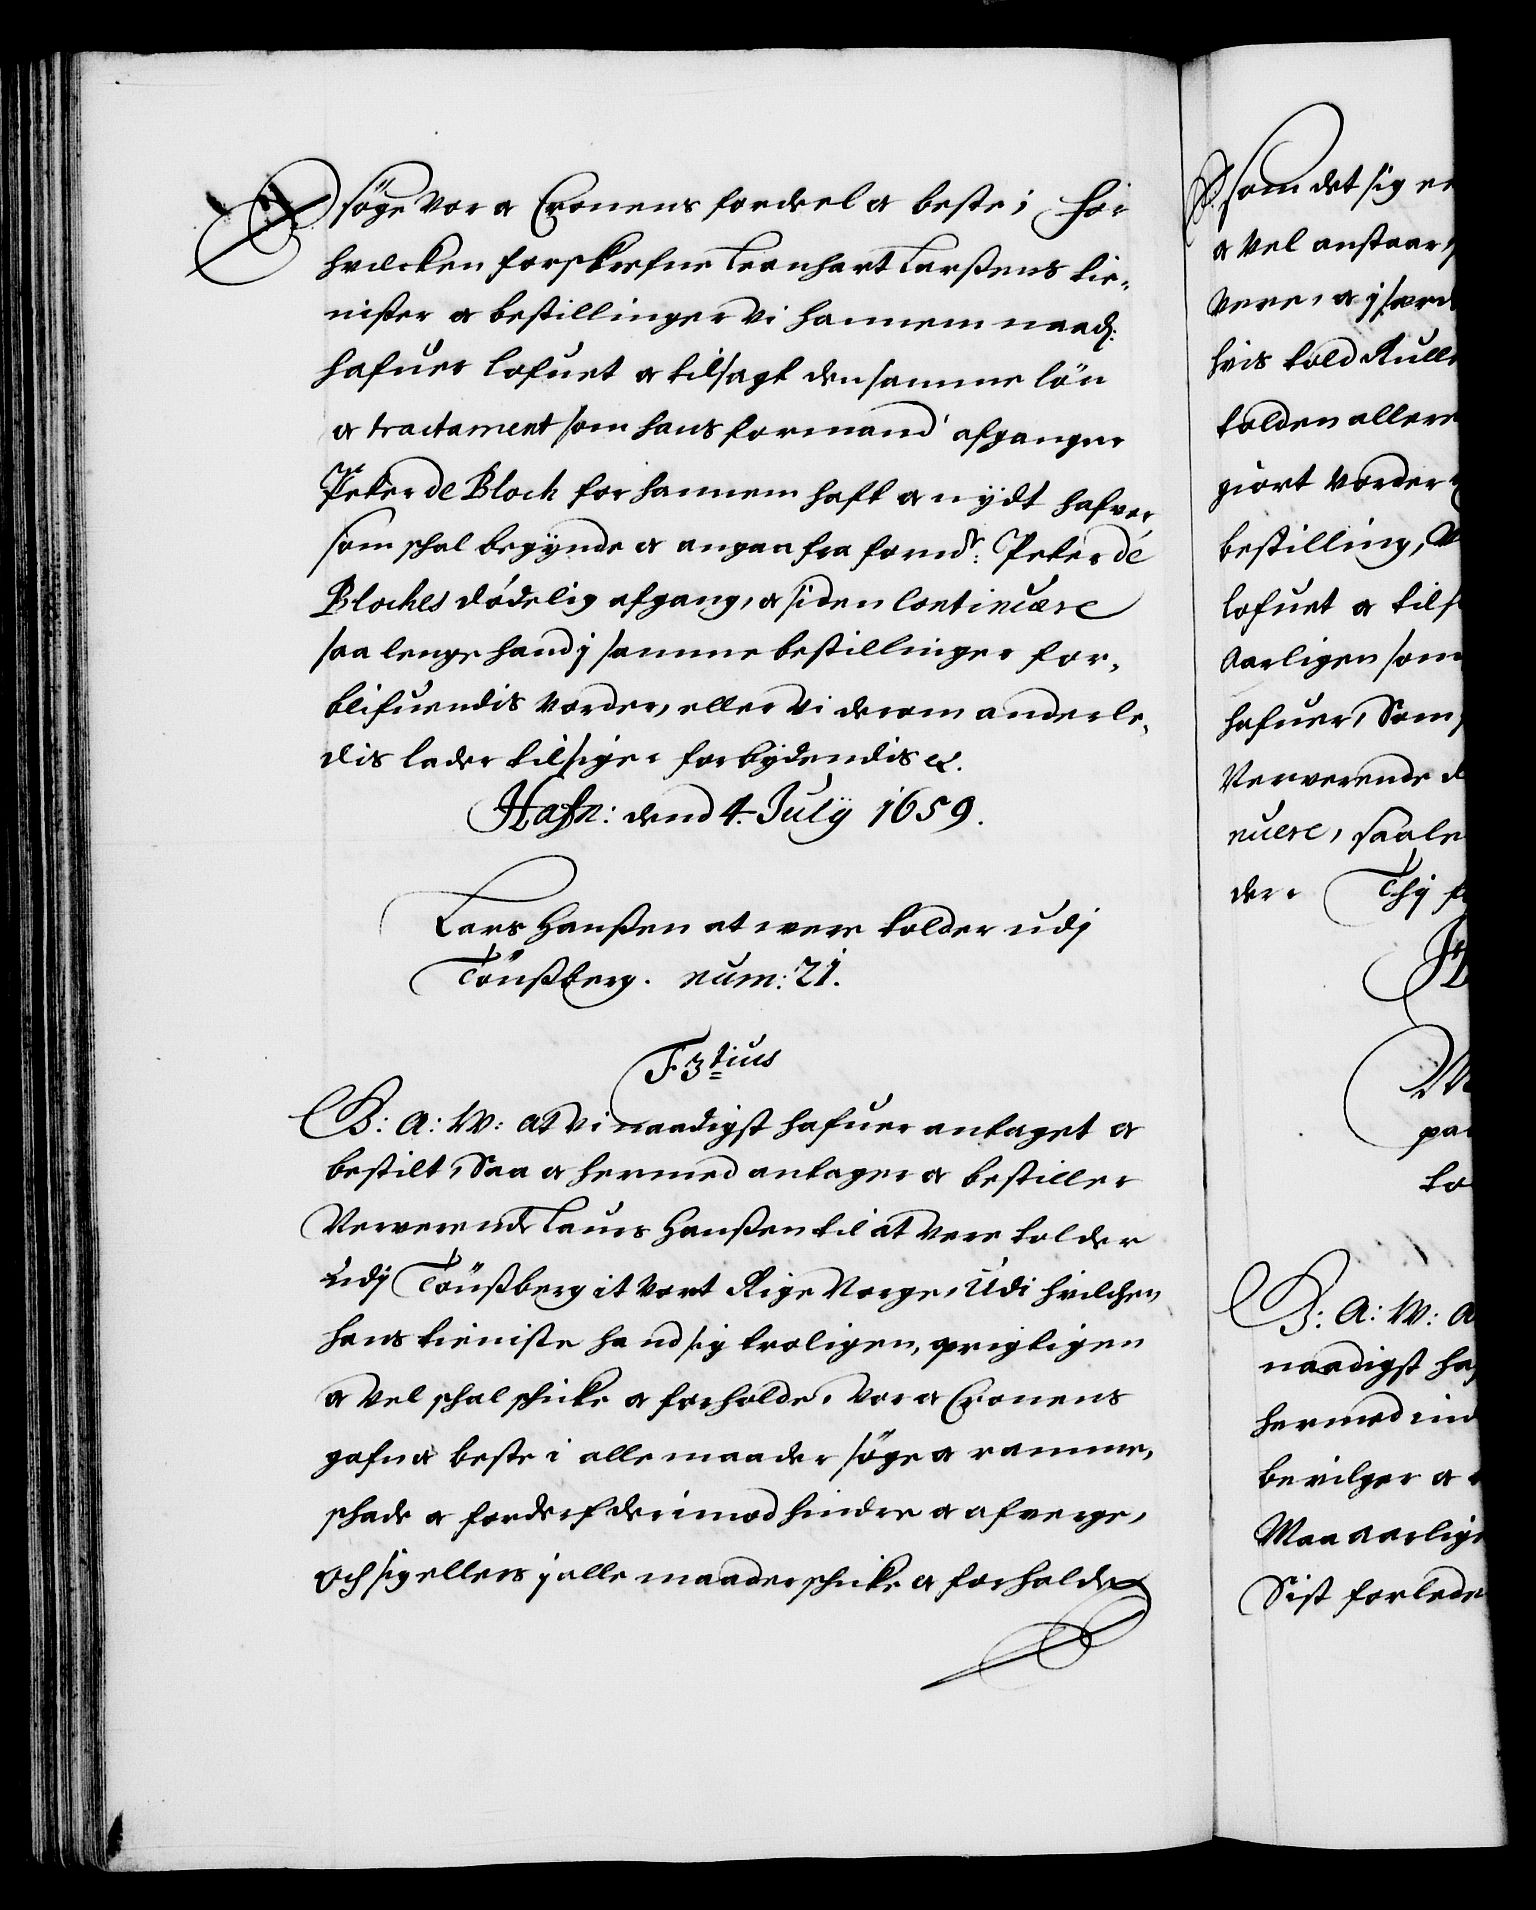 søge vor oc Cronens fordeel oc beste; for
hvilcken forskrefne Leonhart Larßens tie-
nister oc bestillinger vi hannem naad:
hafuer lofuet oc tilsagt den samme løn
oc tractament som hans formand afgangne
Peter de Block for hannem haft oc nÿdt hafver,
som schal begÿnde oc angaa fra formdr: Peter de
Blockes dødelig afgang, oc siden Continuere
saa lenge hand j samme bestillinger for-
blifuendis vorder, eller vi derom anderle-
dis lader tilsige: forbydendis &.
Hafn: dend 4. Julÿ 1659.
Lars Hanßen at were tolder udj
Tönßberg. num: 21.
F 3tius
G: A: W: at vi naadigst hafuer antaget oc
bestilt, Saa oc hermed antager oc bestiller
Ververende Laurs Hanßen til at vere tolder
Udj Tönßberg it vort Rige Norge, Udi hvilchen
hans tieniste hand sig troligen, oprigtigen
oc vel schal schicke oc forholde, vor oc Cronens
gafn oc beste i alle maader søge oc ramme,
schade oc forderf derimod hindre oc afverge,
och sig ellers j alle maader schicke oc forholde
som det sig
oc vel anstaar,
vere, oc j
hvis told Rull
tolden aller
giort vorder
bestilling,
lofuet oc tils
Aarligen som
hafuer, Som
Ververende
nuere, saa le
der. Thj
G: A: W:
naadigst
hermed
bevilger oc
Maa aarlige
Sist forlede